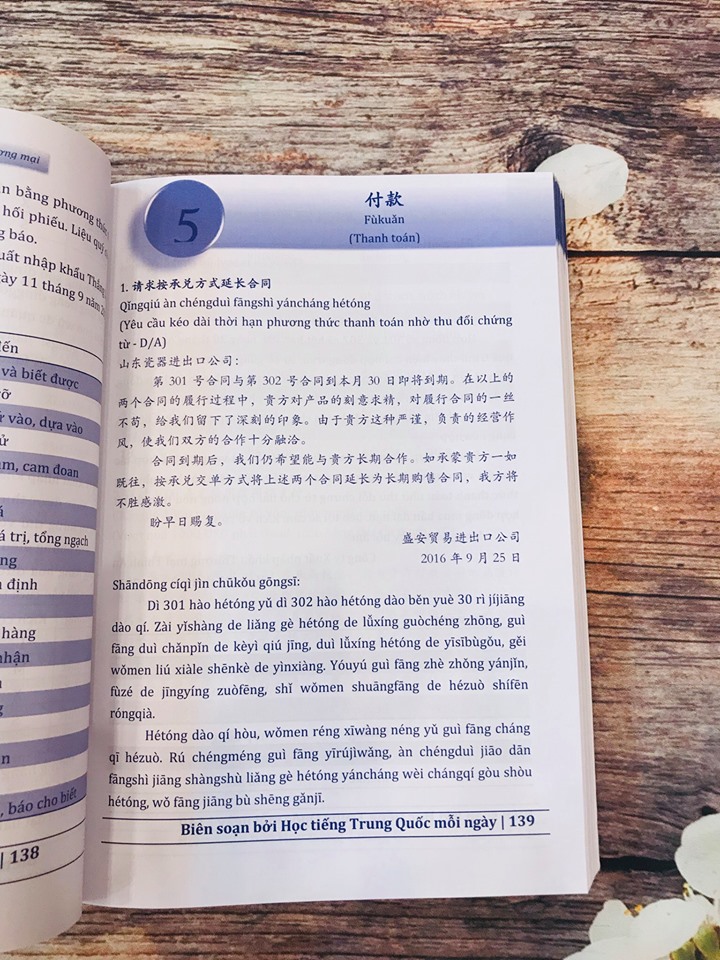 ơng mại
n bằng phương
hối phiếu. Liệu quý
g báo.
uất nhập khẩu
gày 11 tháng 9 năm
đến
và biết được
vào, dựa vào
am, cam đoan
á trị, tổng ngạch
định
hàng
nhận
, báo cho biết
| 138
5
付款
Fùkuǎn
(Thanh toán)
1. 请求按承兑方式延长合同
Qǐngqiú àn chéngduì fāngshì yáncháng hétóng
(Yêu cầu kéo dài thời hạn phương thức thanh toán nhờ thu đổi chứng
từ - D/A)
山东瓷器进出口公司：
第 301 号合同与第 302 号合同到本月 30 日即将到期。在以上的
两个合同的履行过程中，贵方对产品的刻意求精，对履行合同的一丝
不苟，给我们留下了深刻的印象。由于贵方这种严谨，负责的经营作
风，使我们双方的合作十分融洽。
合同到期后，我们仍希望能与贵方长期合作。如承蒙贵方一如
既往，按承兑交单方式将上述两个合同延长为长期购售合同，我方将
不胜感激。
盼早日赐复。
盛安贸易进出口公司
2016 年 9 月 25 日
Shāndōng cíqì jìn chūkǒu gōngsī:
Dì 301 hào hétóng yǔ dì 302 hào hétóng dào běn yuè 30 rì jíjiāng
dào qí. Zài yǐshàng de liǎng gè hétóng de lǚxíng guòchéng zhōng, guì
fāng duì chǎnpǐn de kèyì qiú jīng, duì lǚxíng hétóng de yīsībùgǒu, gěi
wǒmen liú xiàle shēnkè de yìnxiàng. Yóuyú guì fāng zhè zhǒng yánjǐn,
fùzé de jīngyíng zuòfēng, shǐ wǒmen shuāngfāng de hézuò shífēn
róngqià.
Hétóng dào qí hòu, wǒmen réng xīwàng néng yǔ guì fāng cháng
qī hézuò. Rú chéngméng guì fāng yīrújìwǎng, àn chéngduì jiāo dān
fāngshì jiāng shàngshù liǎng gè hétóng yáncháng wèi chángqí gòu shòu
hétóng, wǒ fāng jiāng bù shēng gǎnjī.
Biên soạn bởi Học tiếng Trung Quốc mỗi ngày | 139